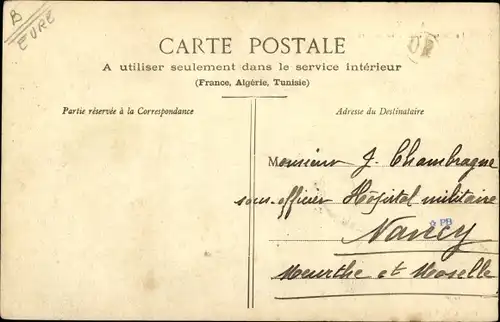 B
EURE
OR
CARTE POSTALE
A utiliser seulement dans le service intérieur
(France, Algérie, Tunisie)
Partie réservée à la Correspondance
Adresse du Destinataire
Monsieur J. Chambragne
sous-officier Hôpital militaire
PB
Nancy
Meurthe et Moselle